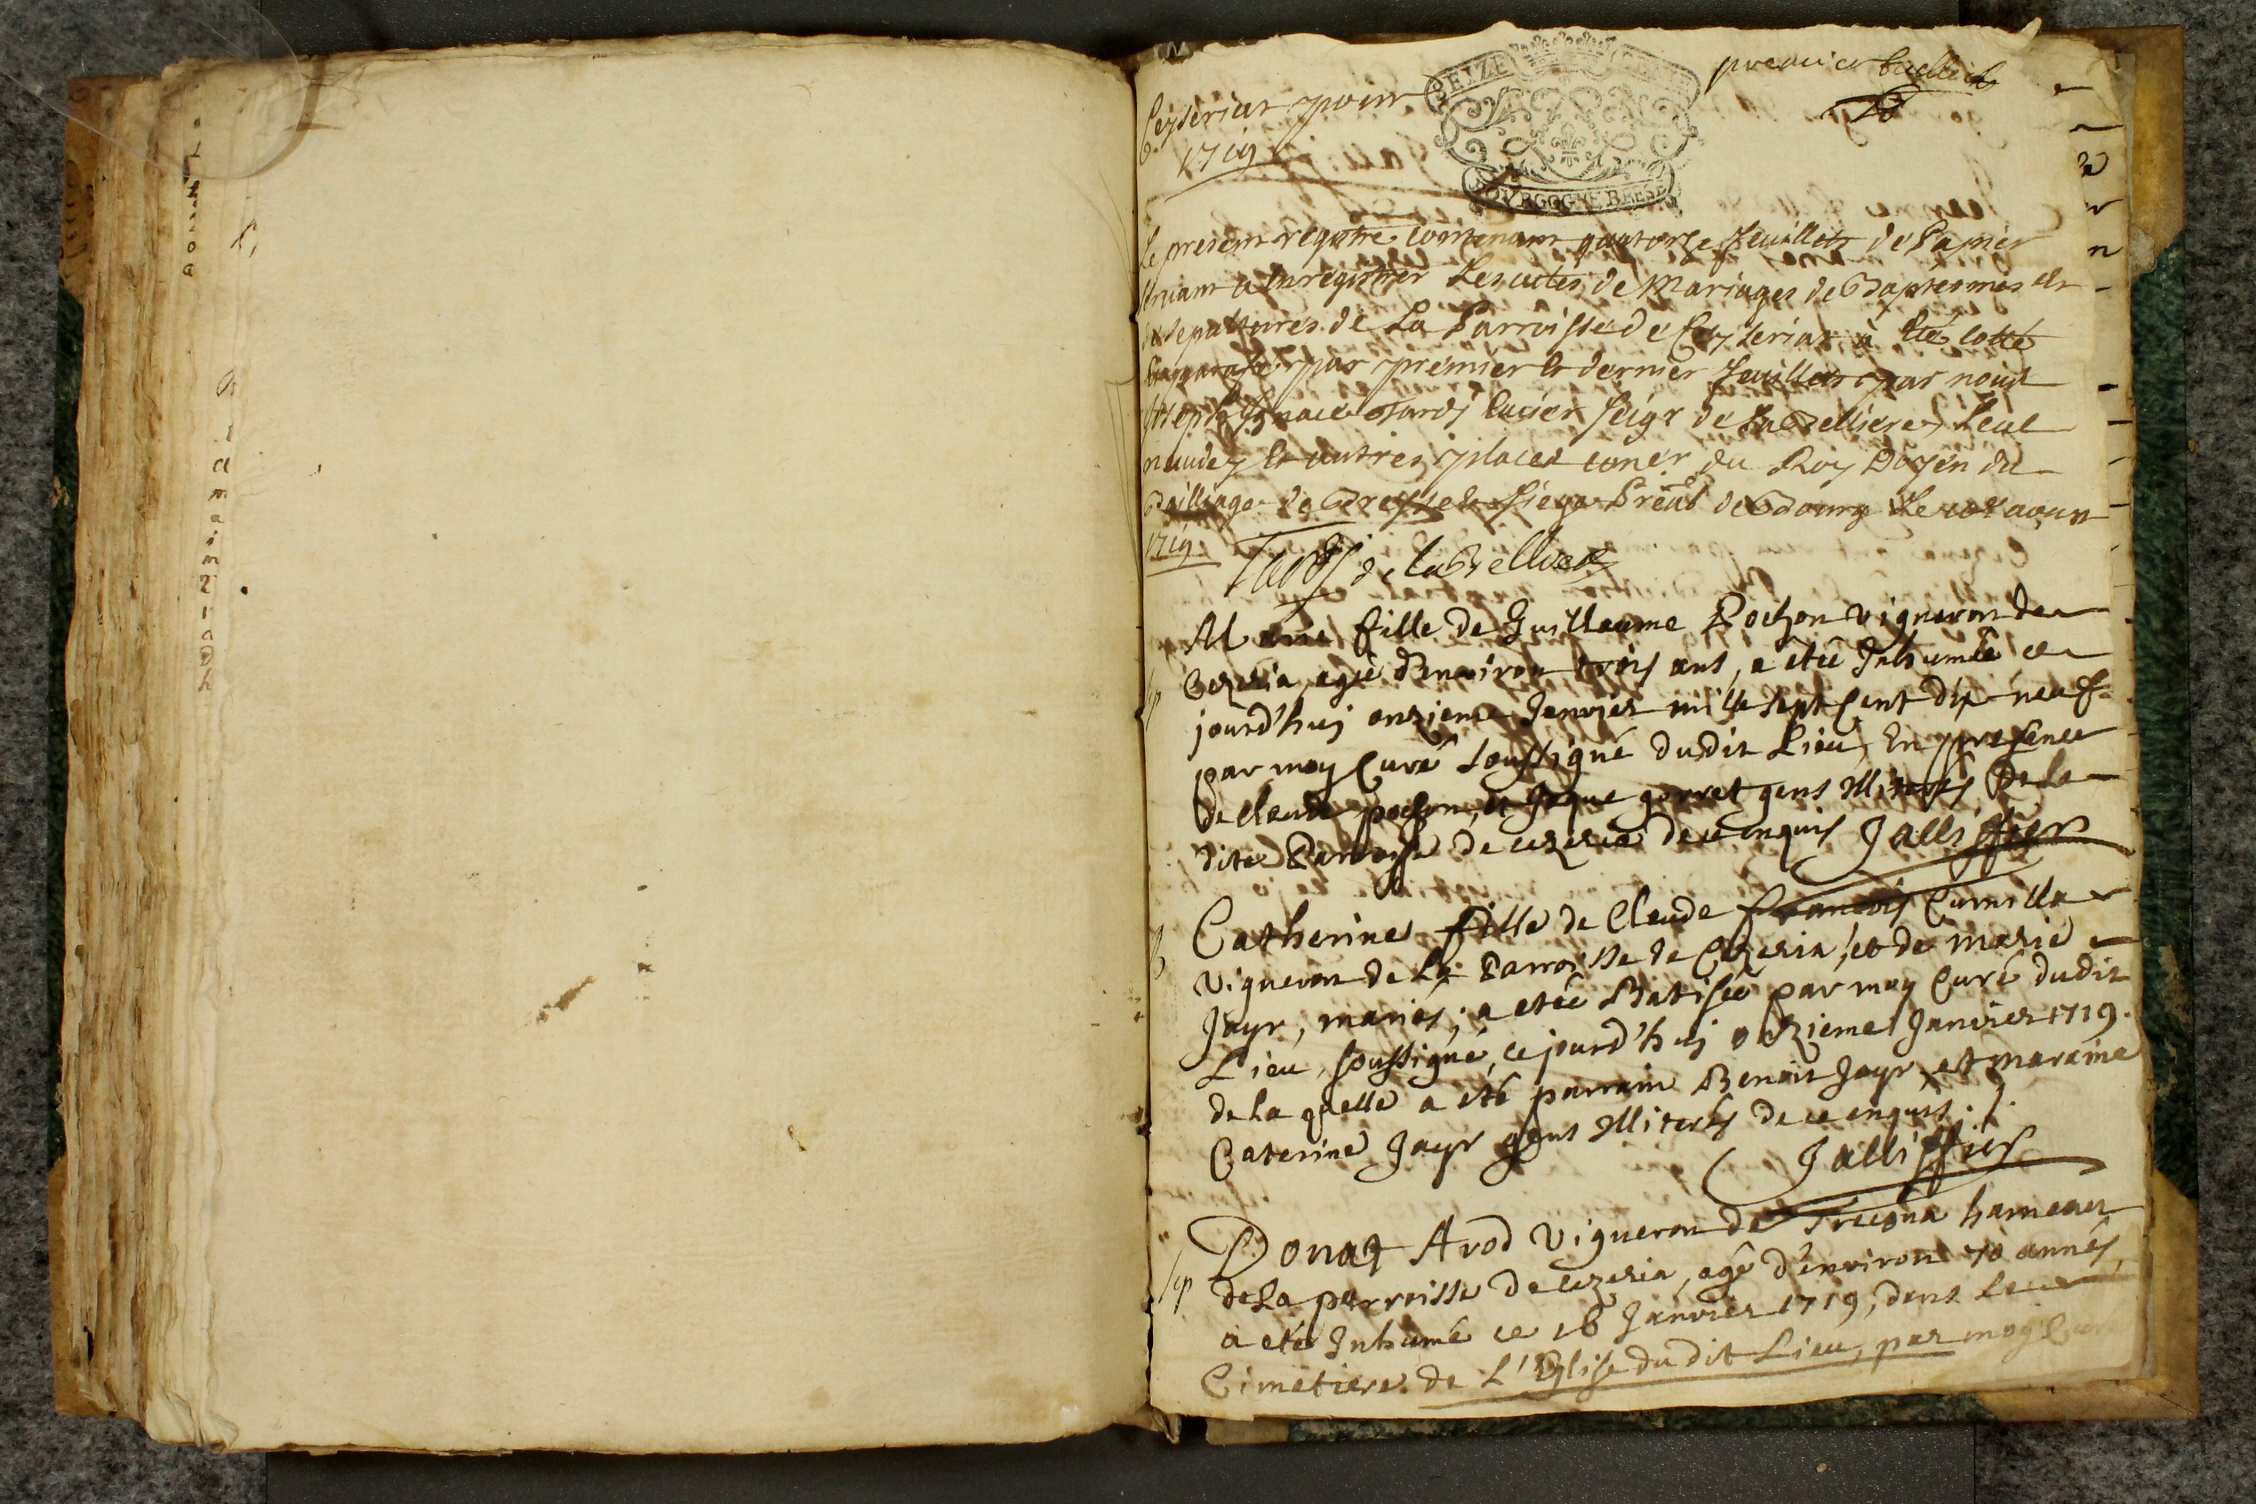 premier feuillet
Ceyseriat pour
1719
SEIZE DENIERS
BOVRGOGNE BRESSE
Le present registre contenant quatorze feuillets de Papier
servant a Enregistrer Les actes de Mariages de Baptesmes et
de sepultures de La Parroisse de Ceyseriat à été cotté
et parraphé par premier et dernier feuillets par nous
Joseph Ignace Tardy Ecuier Seigr de La Belliere
et autres places coner du Roy Doyen du
Bailliage de Bresse et siege Preal de Bourg Le
1719. Tardy de la Belliere
fille de Guillaume Pochon vigneron de
Cezeria, agée d'environ trois ans, a etée Inhumée ce
jourd'huj onzieme Janvier mille sept cent dix neuf
par moy Curé soussigné dudit Lieu, En presence
de Claude pochon, et Jaque gorret gens illiterés De la
dite Parroisse de cezeria de ce enquis Jallifier
Catherine fille de Claude françois Curnilla
Vigneron de La Parroisse de Cezeria, et de marie
Jayr, mariés; a etée Batisée par moy Curé dudit
Lieu, soussigné, ce jourd'huj onzieme Janvier 1719.
de la quelle a été parrain Benoit Jayr, et maraine
Caterine Jayr gens illiterés de ce enquis ./.
Jallifier
Donat Arod Vigneron de Treconna hameau
de La parroisse de cezeria, agé d'environ 70 annés,
a eté Inhumé ce 16 Janvier 1719, dans Le
Cimetiere de L'Eglise du dit Lieu, par moy Curé